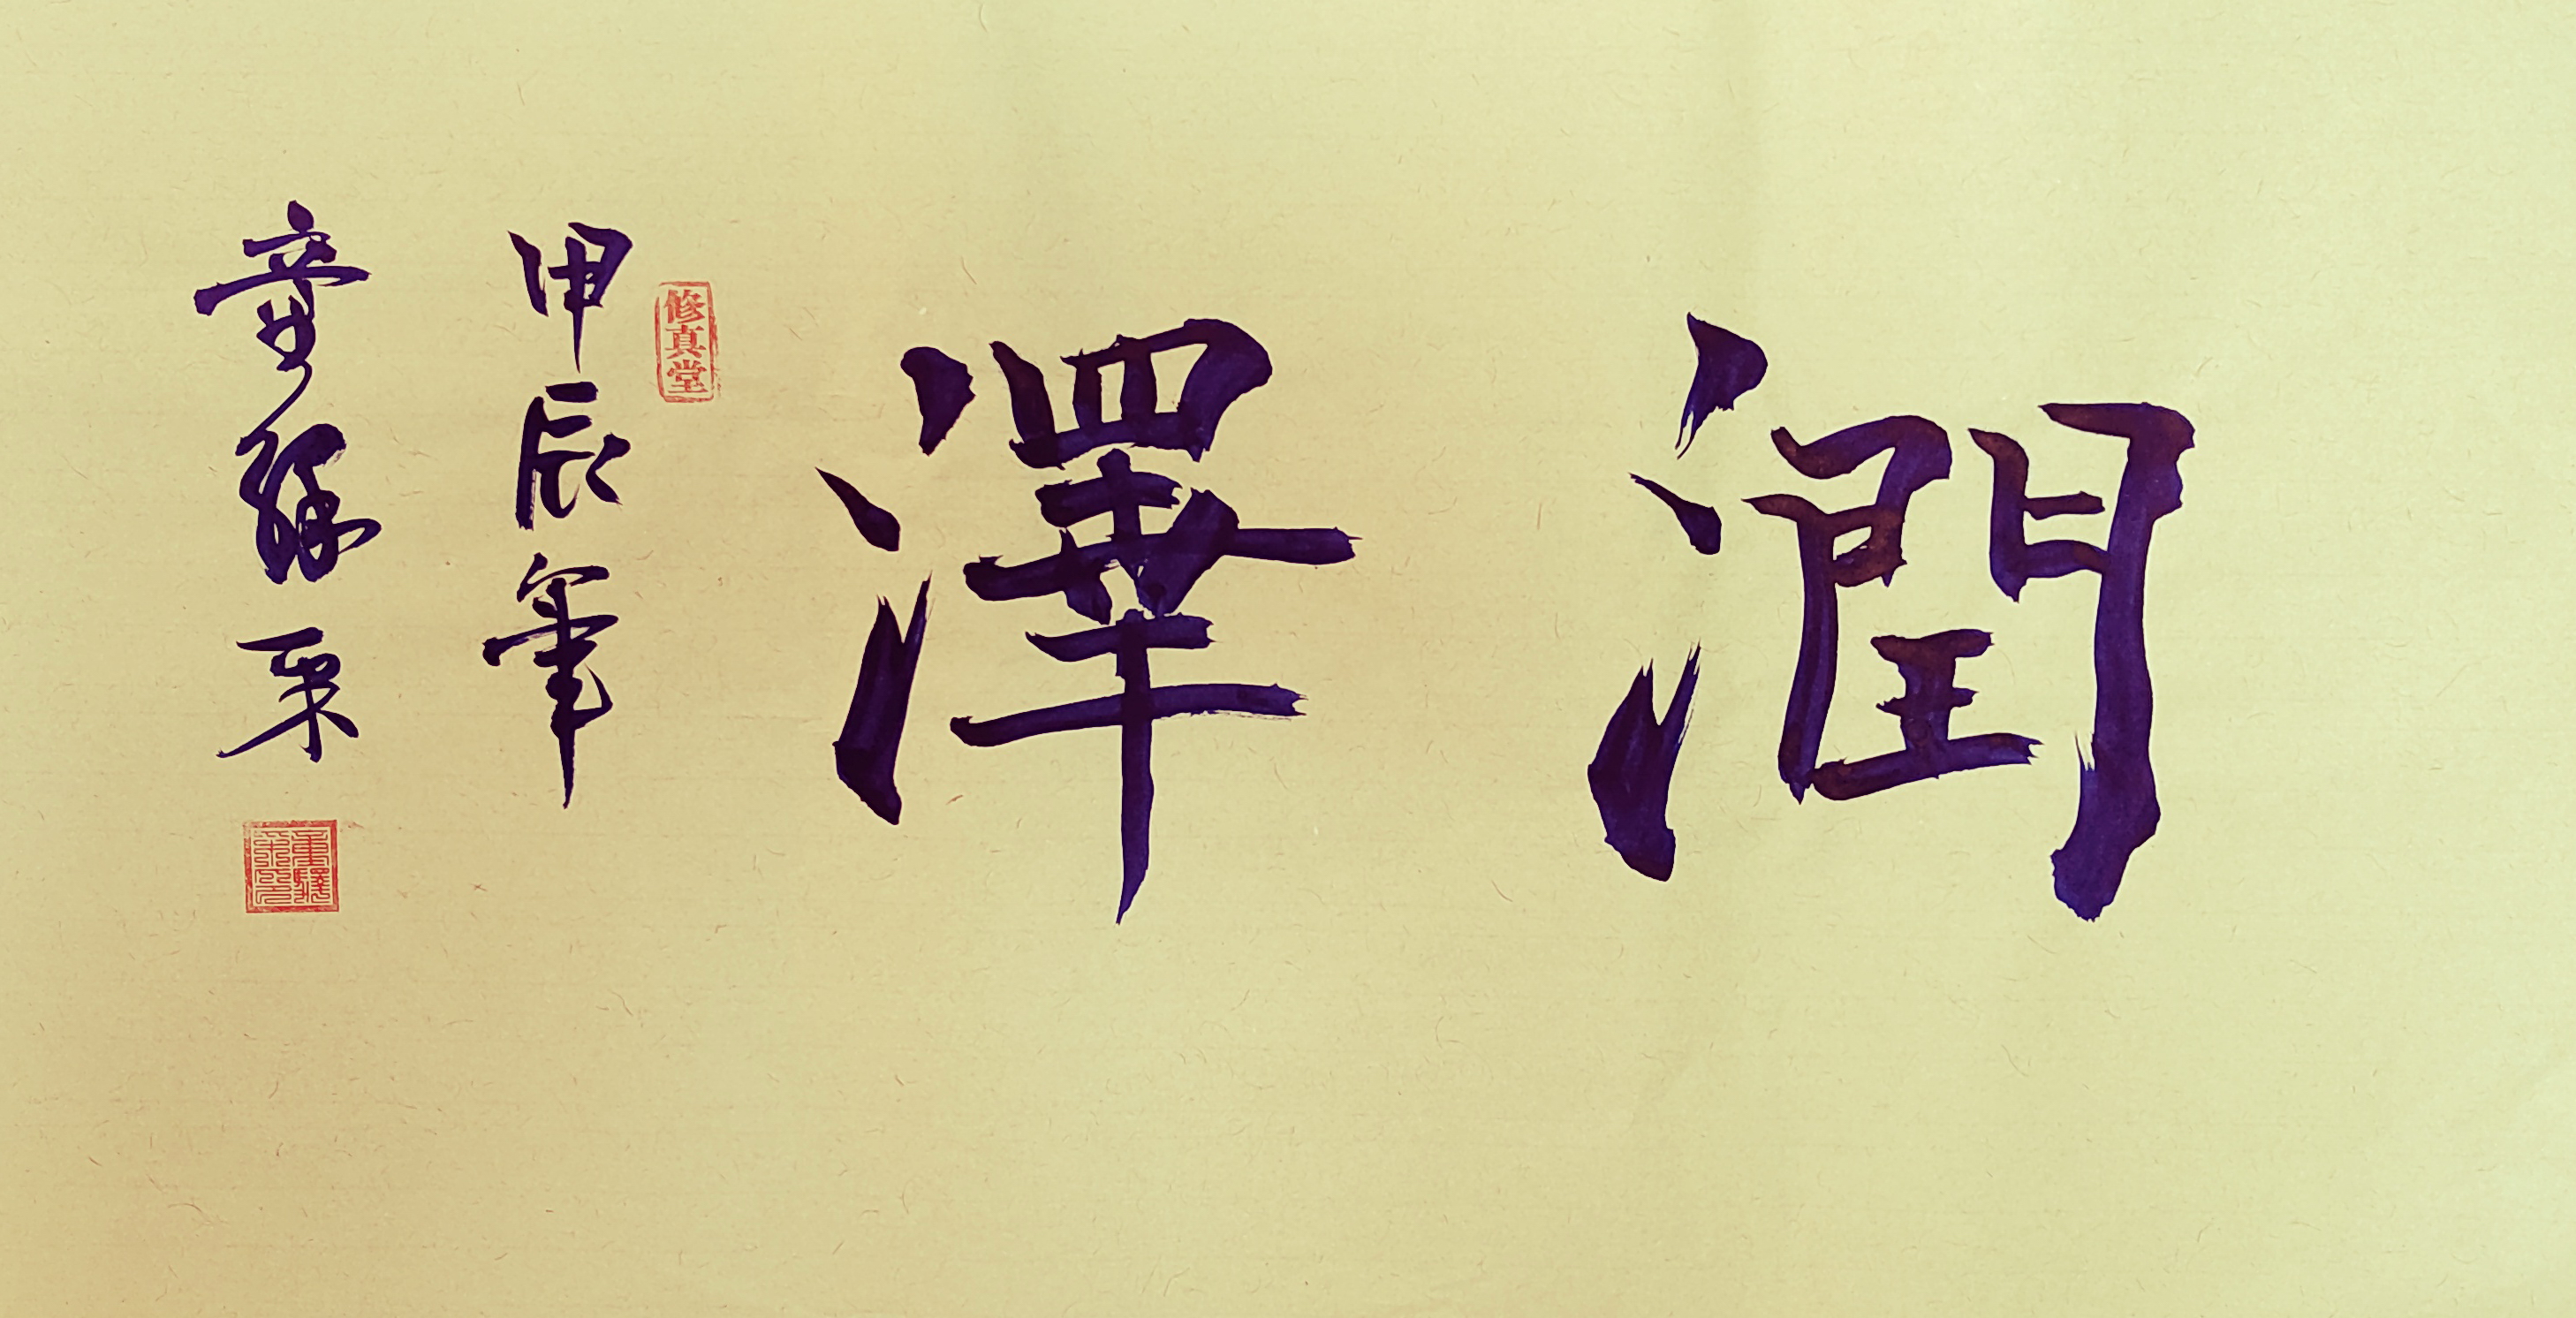 潤澤
修真堂
甲辰年
童